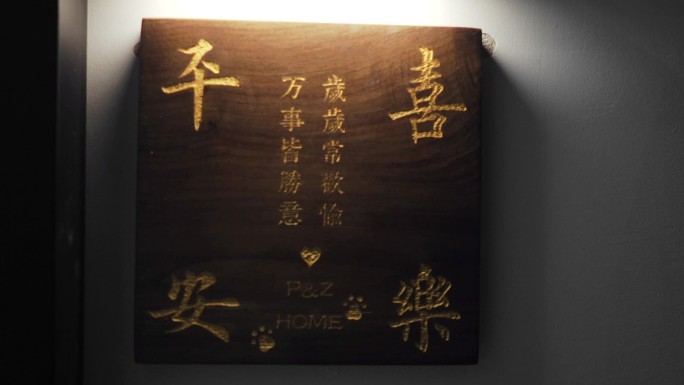 喜樂
歲歲常歡愉
万事皆勝意
平安
P&Z
HOME